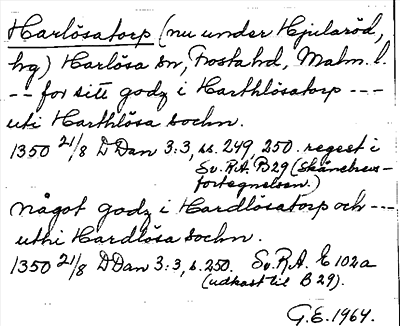 Harlösatorp (nu under Hjularöd,
hg) Harlösa sn, Frosta hd, Malm. l.
-- for sitt godz i Harthlösatorp ---
uti Harthlösa sochn.
1350 21/8 DDan 3:3, ss. 249, 250. regest i
Sv. R.A. B29 (Skånebrevs-
fortegnelsen.)
något godz i Hardlösatorp och ---
uthi Hardlösa sochn.
1350 21/8 DDan 3:3, s. 250. Sv. R.A. E 102a
(udkast til B 29).
G.E. 1964.